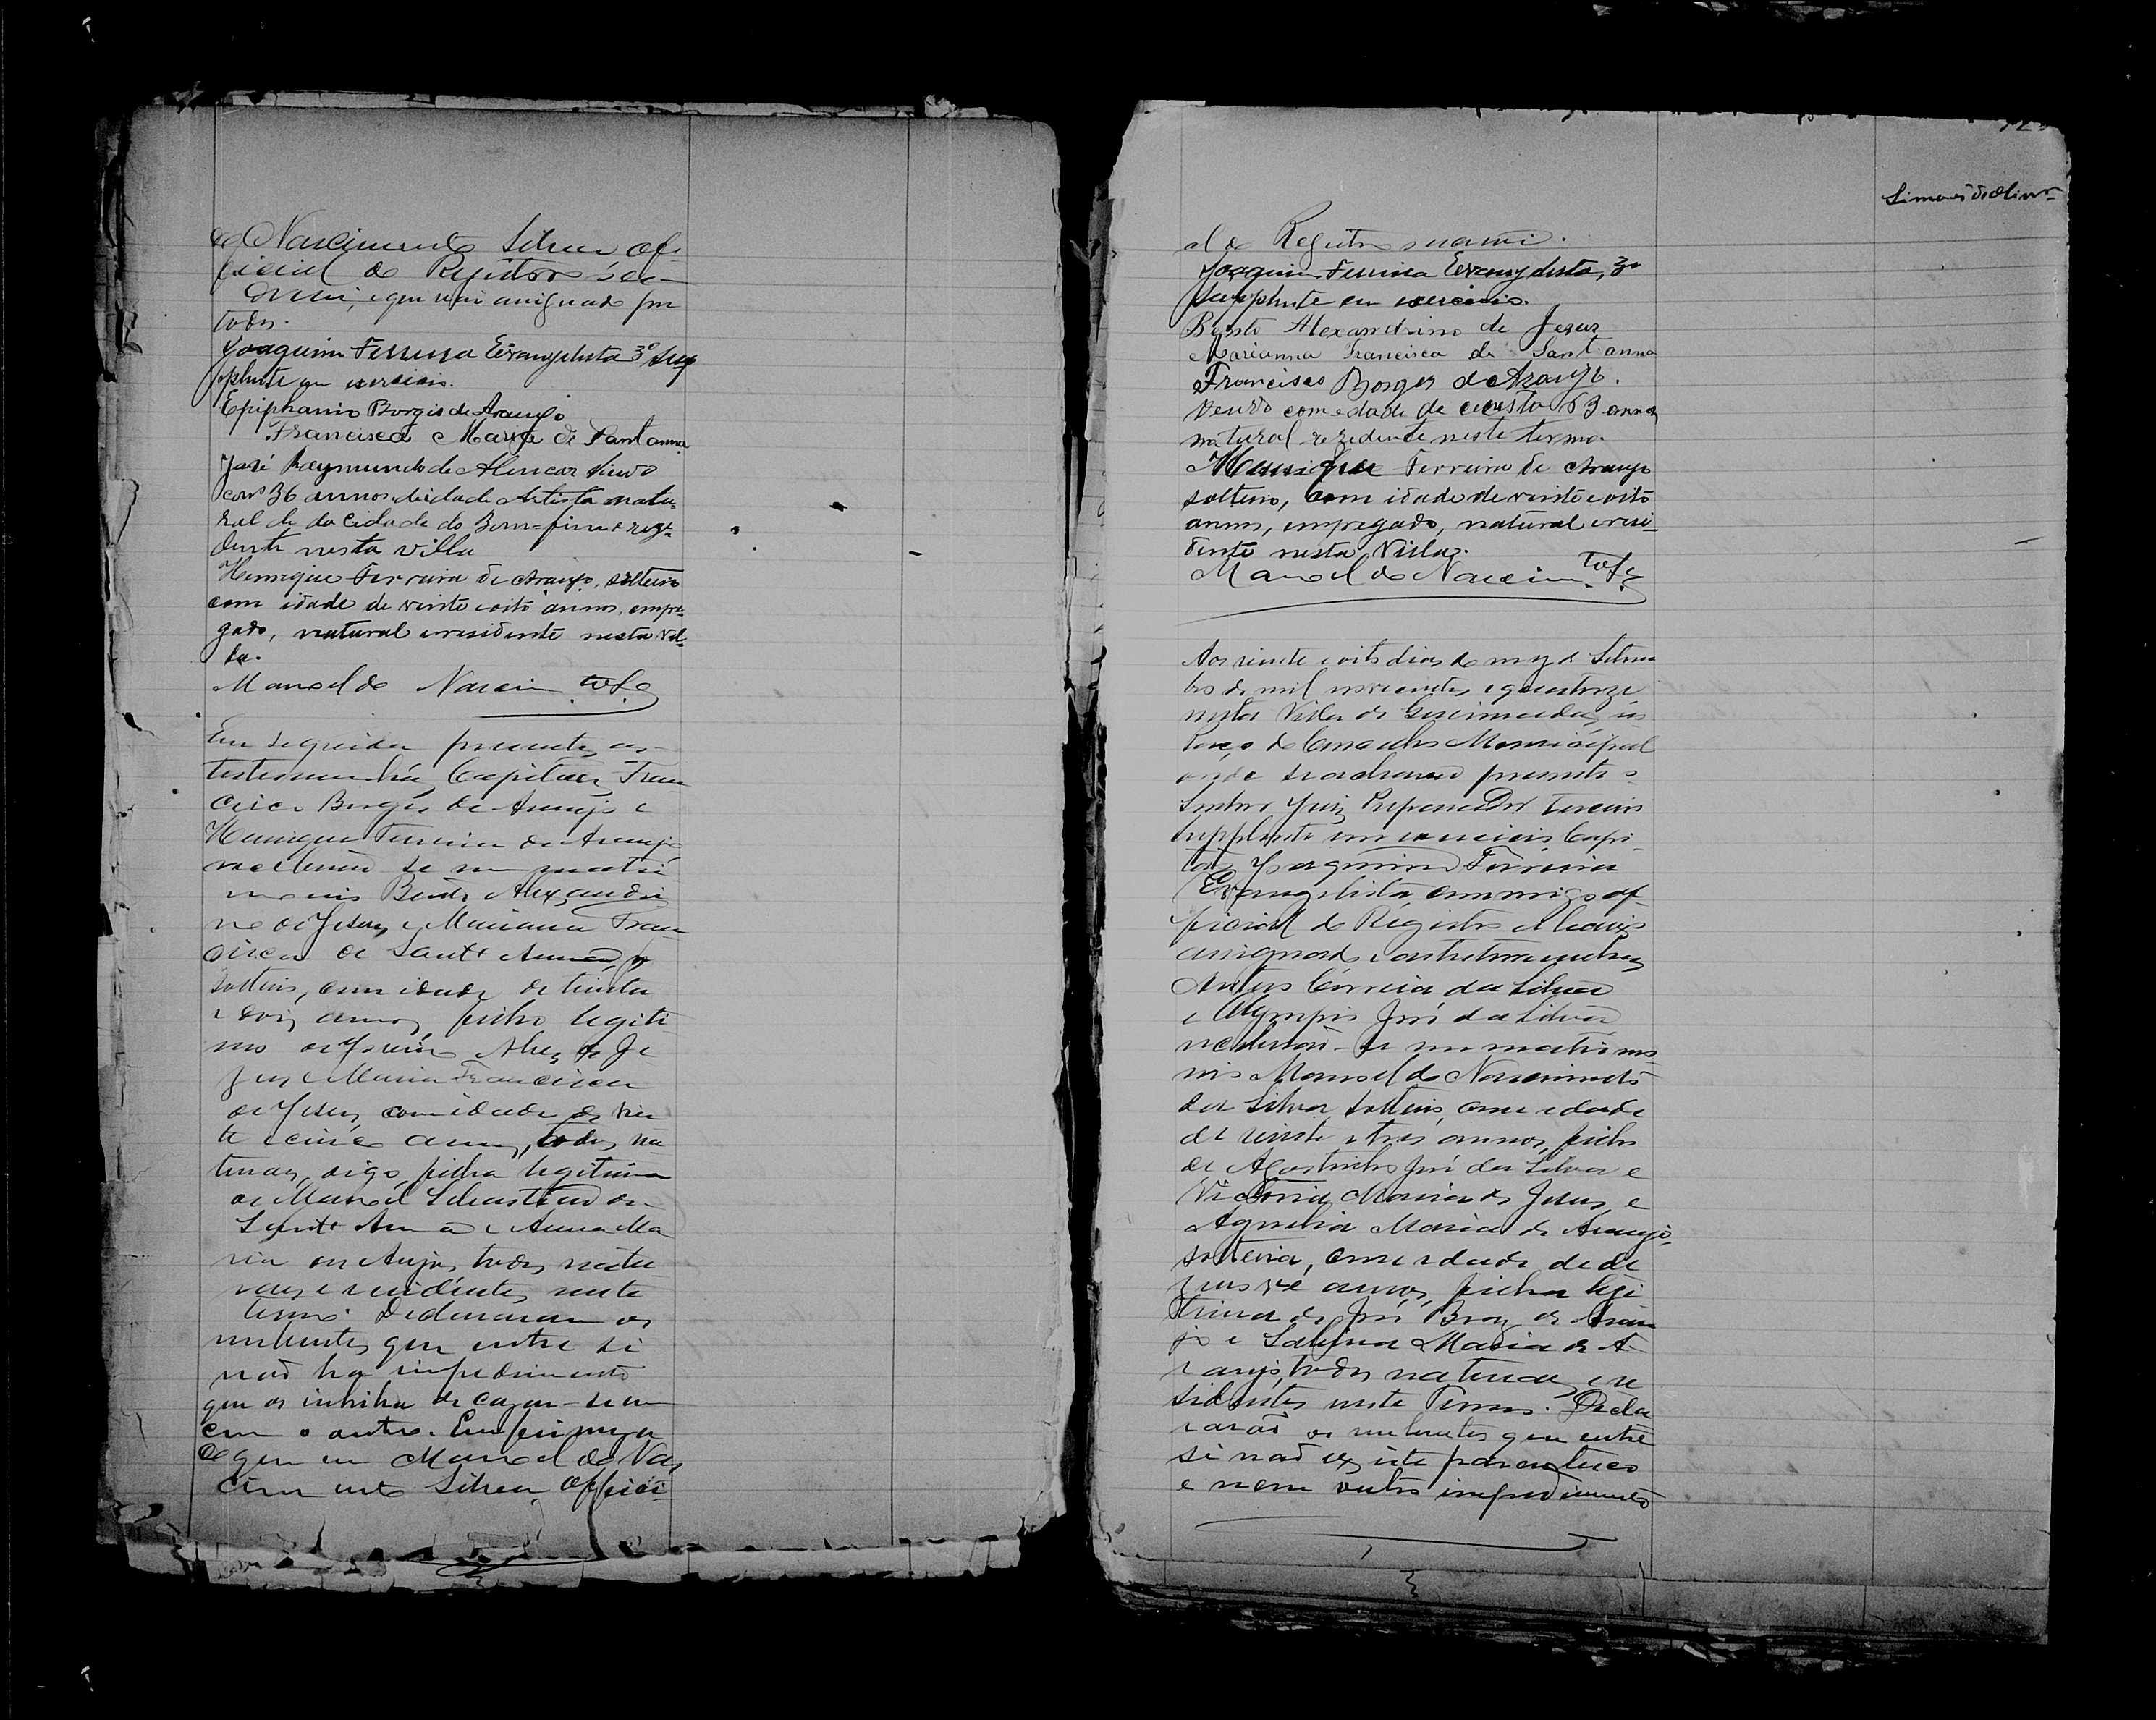 do Nascimento Silva of
ficial do Registro o es-
crevi, e que vai assignado por
todos.
Joaquim Ferreira Evangelista 3º Sup
plente em exercicio.
Epiphanio Borges de Araujo
Francisca Maria de Santanna
José Raymundo de Alencar Viuvo
com 36 annos de idade Artista natu-
ral de da Cidade do Bom-fim e rezi-
dente nesta villa
Henrique Ferreira de Araujo, solteiro
com idade de vinte e oito annos, empre-
gado, natural e residente nesta Vil-
la.
Manoel do Nascim.to S.a
Em seguida presente as
testemunhas Capitão Fran
cisco Borges de Araujo e
Henrique Ferreira de Araujo
receberão se em matri
monio Bento Alexandri
no de Jesus e Mariana Fran
cisca de Sant Anna,
solteiro, com idade de trinta
e dois annos, filho legiti
mo de Alves de Je
zus e Maria Francisca
de Jesus, com idade de vin
te e cinco annos, todos na
turaes, digo, filha legitima
de Manoel Sebastião de
Sant Anna e Anna Ma
ria dos Anjos, todos natu
raes e residentes neste
termo. Declararam os
nubentes que entre si
não ha impedimento
que os inhiba de cazar-se um
com o outro. Em firmeza
de que eu Manoel do Nas
cimento Silva Offici-
Simões de Olivr.a
al do Registro escrevi.
Joaquim Ferreira Evangelista, 3º
Supplente em exercicio.
Bento Alexandrino de Jezus
Marianna Francisca de Sant'anna
Francisco Borges de Araujo.
Veuvo com edade de 63 annos
natural rezidente neste termo.
Henrique Ferreira de Araujo
solteiro, com idade de vinte e oito
annos, empregado, natural e resi-
dente nesta Villa.
Manoel do Nascim.to S.a
Aos vinte e oito dias do mez de Setem
bro de mil novecentos e quatorze
nesta Villa de no
Paço do Conselho Municipal
onde se achava presente o
Senhor Juiz Preparador terceiro
supplente em exercicio Capi-
tão Joaquim Ferreira
Evangelista, commigo of
ficial do Registro abaixo
assignado e as testemunhas
Antero Correia da Silva
e Olympio José da Silva,
receberão-se em matrimo
nio Manoel do Nascimento
da Silva solteiro, com edade
de vinte e tres annos, filho
de Agostinho José da Silva e
Victoria Maria de Jesus, e
Maria de Araujo,
solteira, com edade de de
zenove annos, filha legi
tima de José Braz de Arau
jo e Maria de A-
raujo, todos naturaes e re
sidentes neste Termo. Decla
rarão os nubentes que entre
si não existe parentesco
e nem outro impedimento